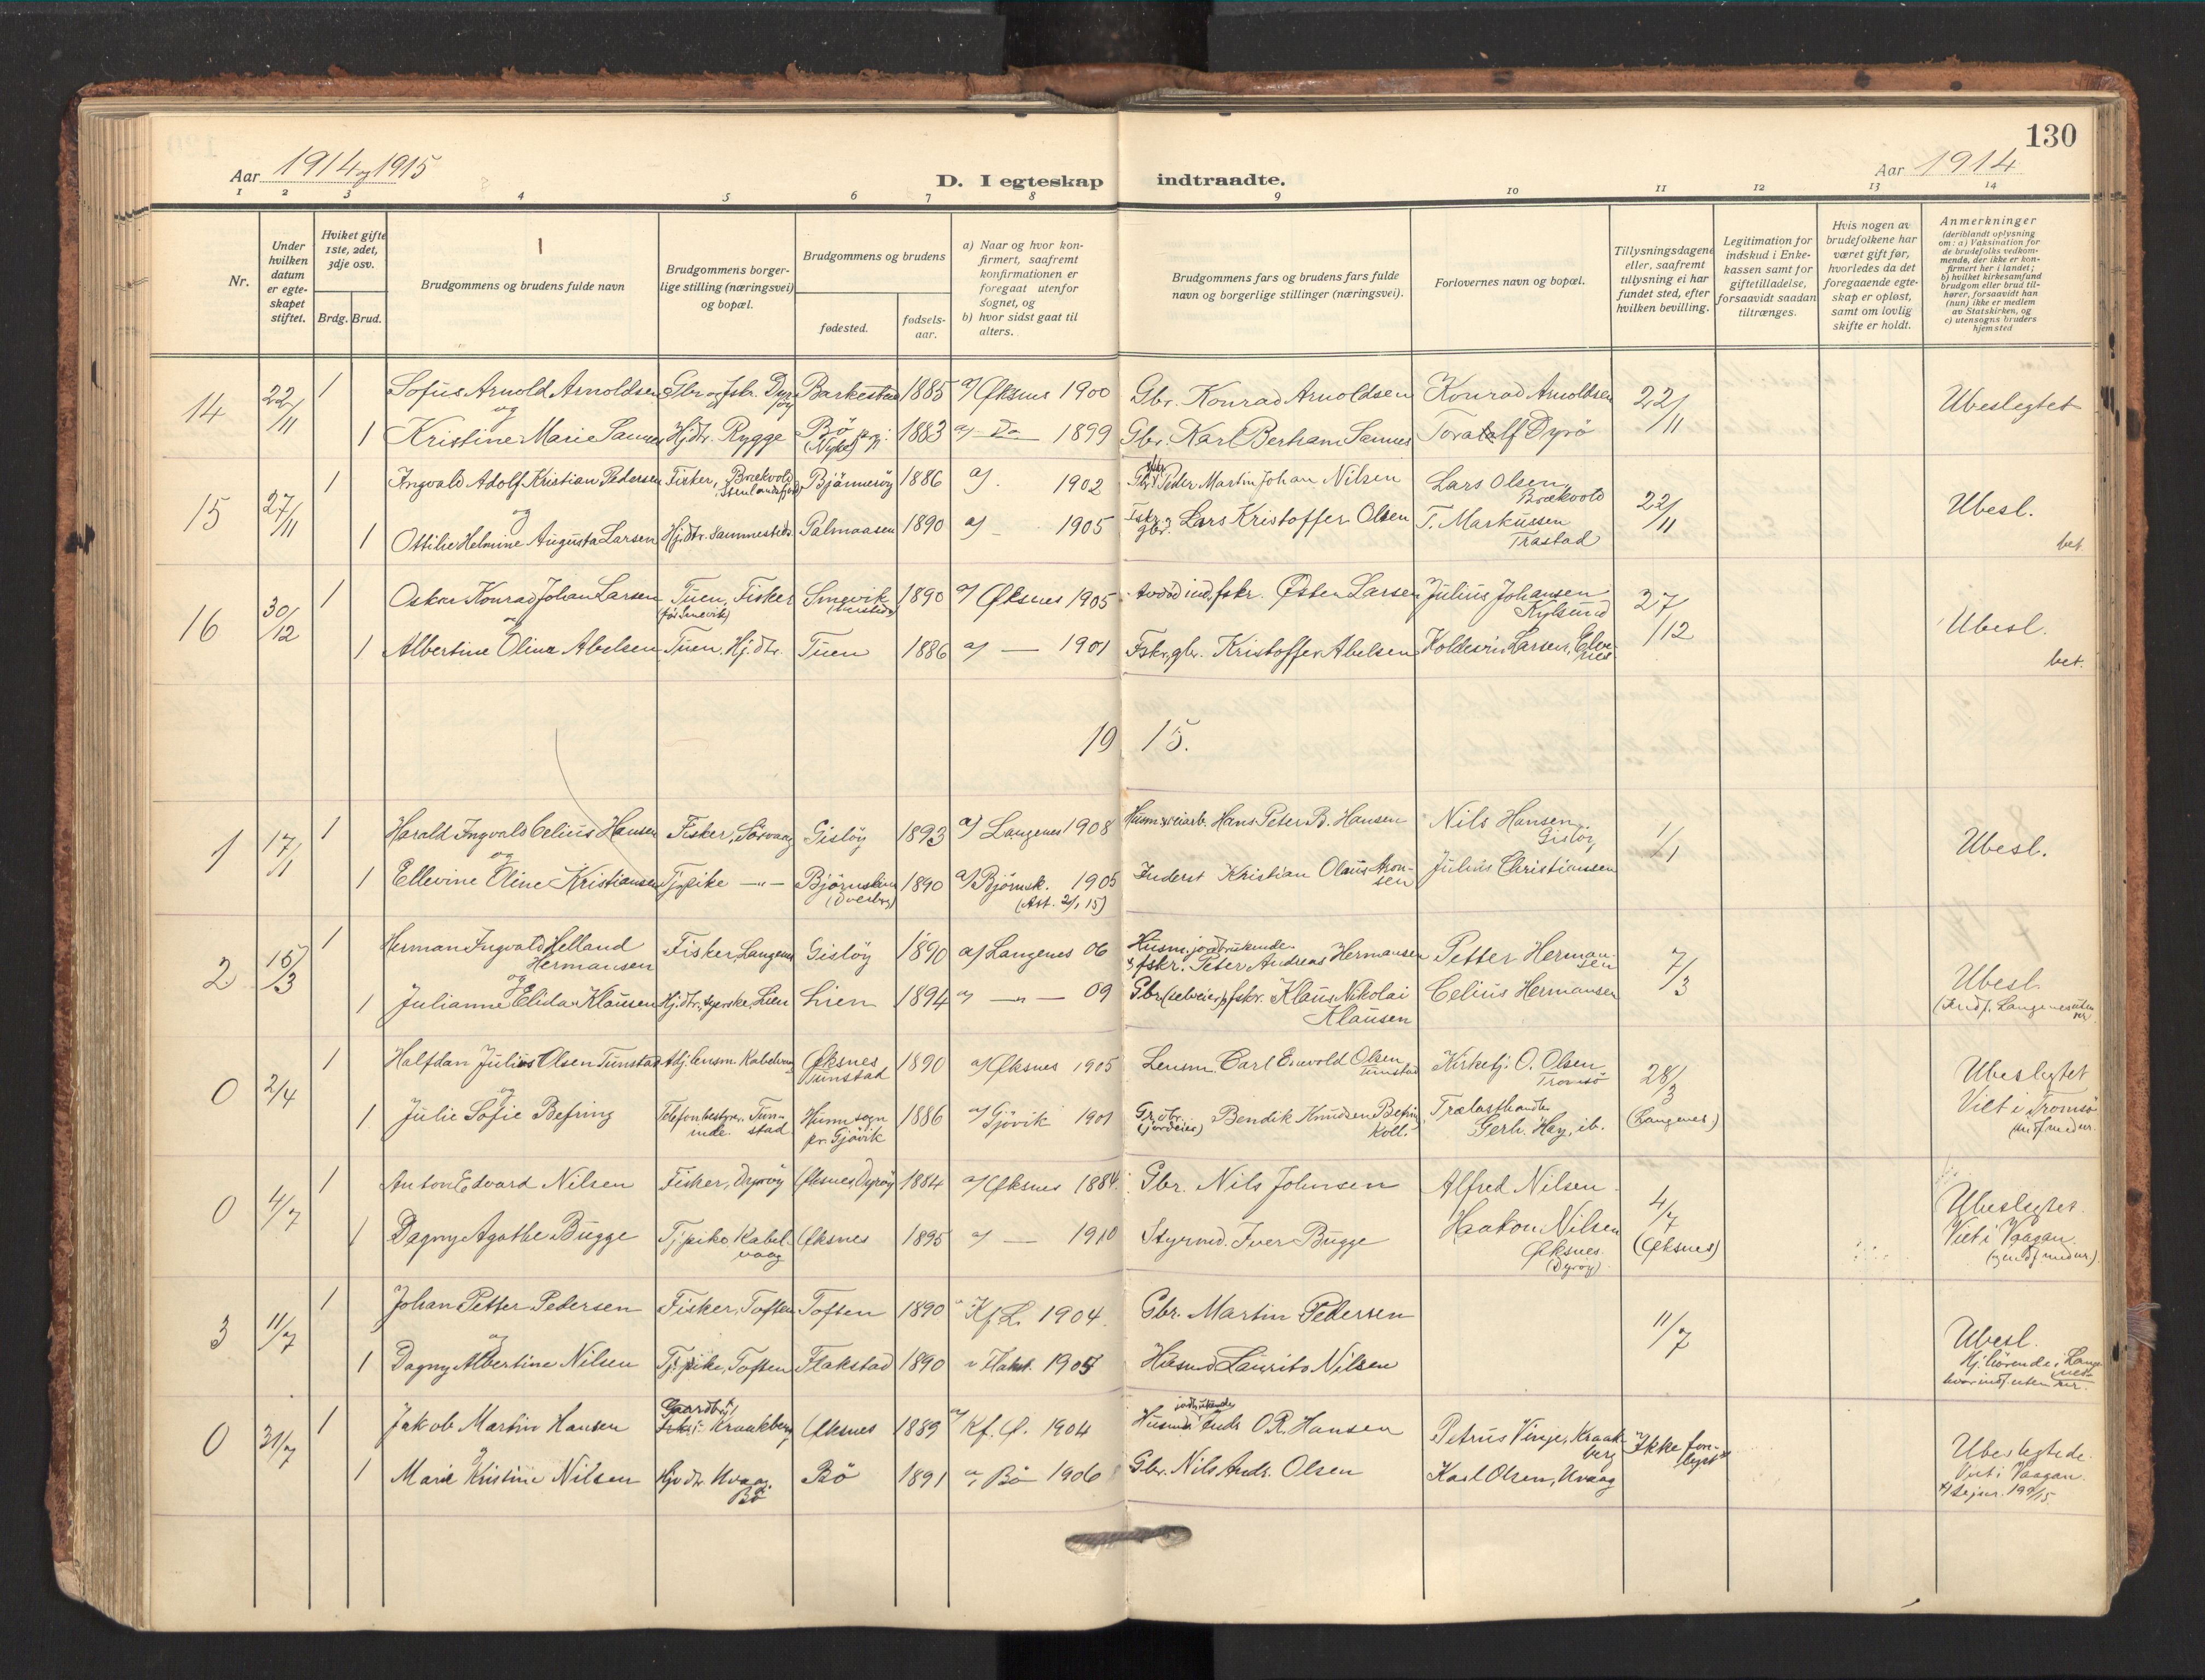 130
Aar 1914 og 1915
D. I egteskap indtraadte.
Aar 1914
1 2 3 4 5 6 7 8 9 10 11 12 13 14
Nr.
Under hvilken datum er egteskapet stiftet.
Hviket gifte 1ste, 2det, 3dje osv.
Brdg. Brud.
Brudgommens og brudens fulde navn
Brudgommens borgerlige stilling (næringsvei) og bopæl.
Brudgommens og brudens
fødested.
fødselsaar.
a) Naar og hvor konfirmert, saafremt konfirmationen er foregaat utenfor sognet, og
b) hvor sidst gaat til alters.
Brudgommens fars og brudens fars fulde navn og borgerlige stillinger (næringsvei).
Forlovernes navn og bopæl.
Tillysningsdagene eller, saafremt tillysning ei har fundet sted, efter hvilken bevilling.
Legitimation for indskud i Enkekassen samt for giftetilladelse, forsaavidt saadan tiltrænges.
Hvis nogen av brudefolkene har været gift før, hvorledes da det foregaaende egteskap er opløst, samt om lovlig skifte er holdt.
Anmerkninger (deriblandt oplysning om: a) Vaksination for de brudefolks vedkommende, der ikke er konfirmert her i landet; b) hvilket kirkesamfund brudgom eller brud tilhører, forsaavidt han (hun) ikke er medlem av Statskirken, og c) utensogns bruders hjemsted
14 22/11 1 Sofus Arnold Arnoldsen Gbr og fskr. Dyrøy Barkestad 1885 a) Øksnes 1900 Gbr. Konrad Arnoldsen Konrad Arnoldsen 22/11 Ubeslegtet
og
1 Kristine Marie Sannes Hj.dtr. Rygge Bö prgj. (Nykv) 1883 a) Do 1899 Gbr. Karl Bertham Sannes Toralf Dyrö
15 27/11 1 Ingvald Adolf Kristian Pedersen Fisker, Brækvold Bjännerøy 1886 a) 1902 Peder Martin Johan Nilsen Lars Olsen, Brækvold 22/11 Ubesl.
og
1 Ottilie Helmine Augusta Larsen Hj.dtr. sammesteds. Palmaasen 1890 a) 1905 Fskr. gbr. Lars Kristoffer Olsen T. Markussen Trastad bet.
16 30/12 1 Oskar Konrad Johan Larsen Tuen, Fisker (før Smevik) Smevik 1890 a) Øksnes 1905 Avdöd ind, fskr. Östen Larsen Julius Johansen Kylsund 27/12 Ubesl.
og
1 Albertine Olina Abelsen Tuen. Hj.dtr. Tuen 1886 a) — 1901 Fskr, gbr. Kristoffer Abelsen Larsen, bet.
1915.
1 17/1 1 Harald Ingvald Celius Hansen Fisker, Sörvaag Gisløy 1893 a) Langenes 1908 Husm. veiarb. Hans Peter B. Hansen Nils Hansen Gisløy, 1/1 Ubesl.
og
1 Ellevine Oline Kristiansen Tj.pike —"— Björnskin 1890 a) Björnsk. 1905 (Att. 2/1 15) Inderst Kristian Olaus Aronsen Julius Christiansen
2 15/3 1 Herman Ingvald Helland Hermansen Fisker, Langenes Gisløy 1890 a) Langenes 06 Husm. jordbrukende & fskr. Peter Andreas Hermansen Petter Hermansen 7/3 Ubesl.
og
1 Julianne Elida Klausen Hj.dtr, syerske, Lien Lien 1894 a) —"— 09 Gbr (selveier) fskr. Klaus Nikolai Klausen Celius Hermansen (Indf. Langenes uten nr.
0 2/4 1 Halfdan Julius Olsen Tunstad Adj. lensm. Kabelvaag Øksnes Tunstad 1890 a) Øksnes 1905 Lensm. Carl Enevold Olsen Tunstad Kirketj. O. Olsen Tromsö 28/3 Ubeslegtet
og
1 Julie Sofie Befring Telefonbestyrerinde. Tunstad Hunn sogn pr. Gjövik 1886 a) Gjövik 1901 Grdbr. (jordeier) Bendik Knudsen Befring Koll. Trælasthandler Gerh. Hay, ib. (Langenes) Viet i Tromsö
0 4/7 1 Anton Edvard Nilsen Fisker, Dyrøy Øksnes, Dyrøy 1884 a) Øksnes 1884. Gbr. Nils Johnsen Alfred Nilsen 4/7 (Øksnes) Ubeslegtet. Viet i Vaagan.
1 Dagny Agathe Bugge Tj.pike Kabelvaag Øksnes 1895 a) — 1910 Styrmd. Iver Bugge Haakon Nilsen Øksnes. (Dyrøy)
3 11/7 1 Johan Petter Pedersen Fisker, Toften Toften 1890 Kf. L. 1904. Gbr. Martin Pedersen 11/7 Ubesl.
og
1 Dagny Albertine Nilsen Tj.pike, Toften Flakstad 1890 Flakst. 1905 Husmd Laurits Nilsen Hj.hörende i Langenes hvor indf. uten nr.
0 31/7 1 Jakob Martin Hansen Gaardbr. Kraakberg Øksnes 1889 a) Kf. Ø. 1904 jordbrukende Husmd O. R. Hansen Petrus Vinje, Kraakberg Ikke forlyst Ubeslegtede. Viet i Vaagan.
og
1 Marie Kristine Nilsen Hj.v dtr. Uvaag Bö Bö 1891 a) Bö 1906 Gbr. Nils Andr. Olsen Karl Olsen, Uvaag